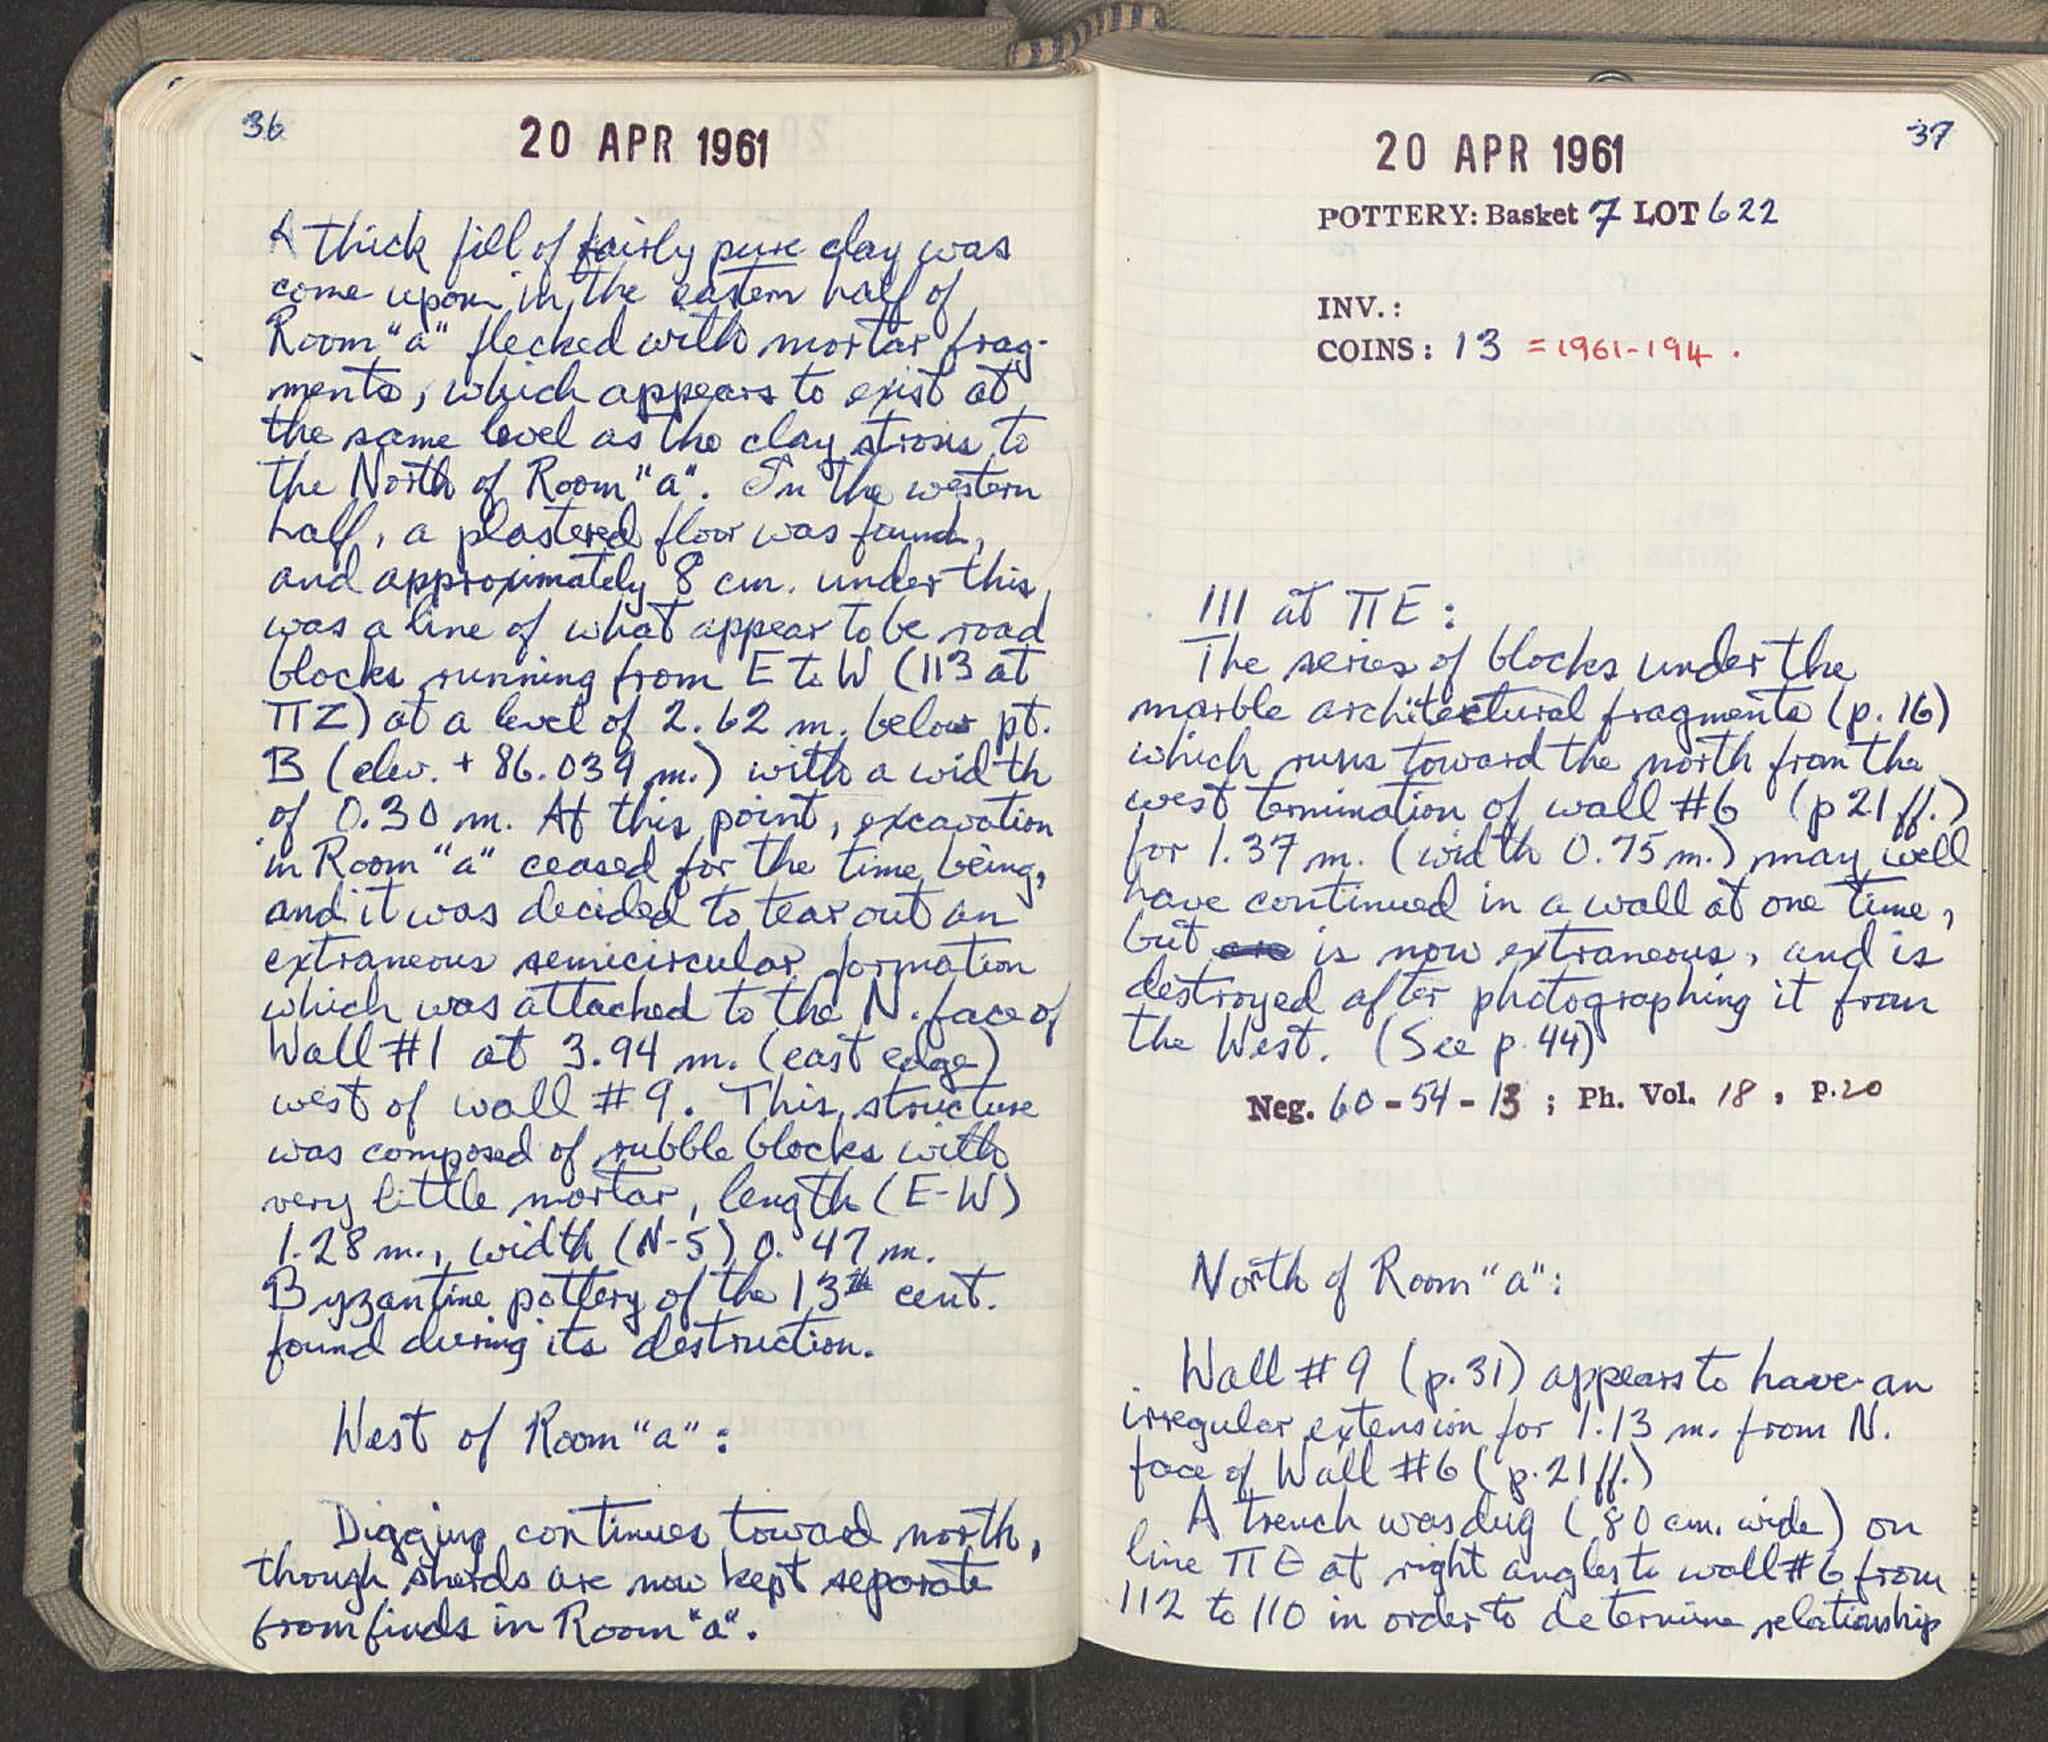 36
20 APR 1961
A thick fill of fairly pure clay was
come upon in the eastern half of
Room "a" flecked with mortar frag-
ments, which appears to exist at
the same level as the clay strosis to
the North of Room "a". In the western
half, a plastered floor was found,
and approximately 8 cm. under this
was a line of what appear to be road
blocks running from E to W (113 at
ΠΖ) at a level of 2.62 m. below pt.
B (elev. + 86.039 m.) with a width
of 0.30 m. At this point, excavation
in Room "a" ceased for the time being,
and it was decided to tear out an
extraneous semicircular formation
which was attached to the N. face of
Wall #1 at 3.94 m. (east edge)
west of wall #9. This structure
was composed of rubble blocks with
very little mortar, length (E-W)
1.28 m., width (N-S) 0.47 m.
Byzantine pottery of the 13th cent.
found during its destruction.
West of Room "a":
Digging continues toward north,
though sherds are now kept separate
from finds in Room "a".
37
20 APR 1961
POTTERY: Basket 7 LOT 622
INV.:
COINS: 13 = 1961-194.
111 at ΠΕ:
The series of blocks under the
marble architectural fragments (p. 16)
which runs toward the north from the
west termination of wall #6 (p 21 ff.)
for 1.37 m. (width 0.75 m.) may well
have continued in a wall at one time,
but is now extraneous, and is
destroyed after photographing it from
the West. (See p. 44)
Neg. 60-54-13; Ph. Vol. 18, p.20
North of Room "a":
Wall #9 (p.31) appears to have an
irregular extension for 1.13 m. from N.
face of Wall #6 (p.21ff.)
A trench was dug (80 cm. wide) on
line ΠΕ at right angles to wall #6 from
112 to 110 in order to determine relationship